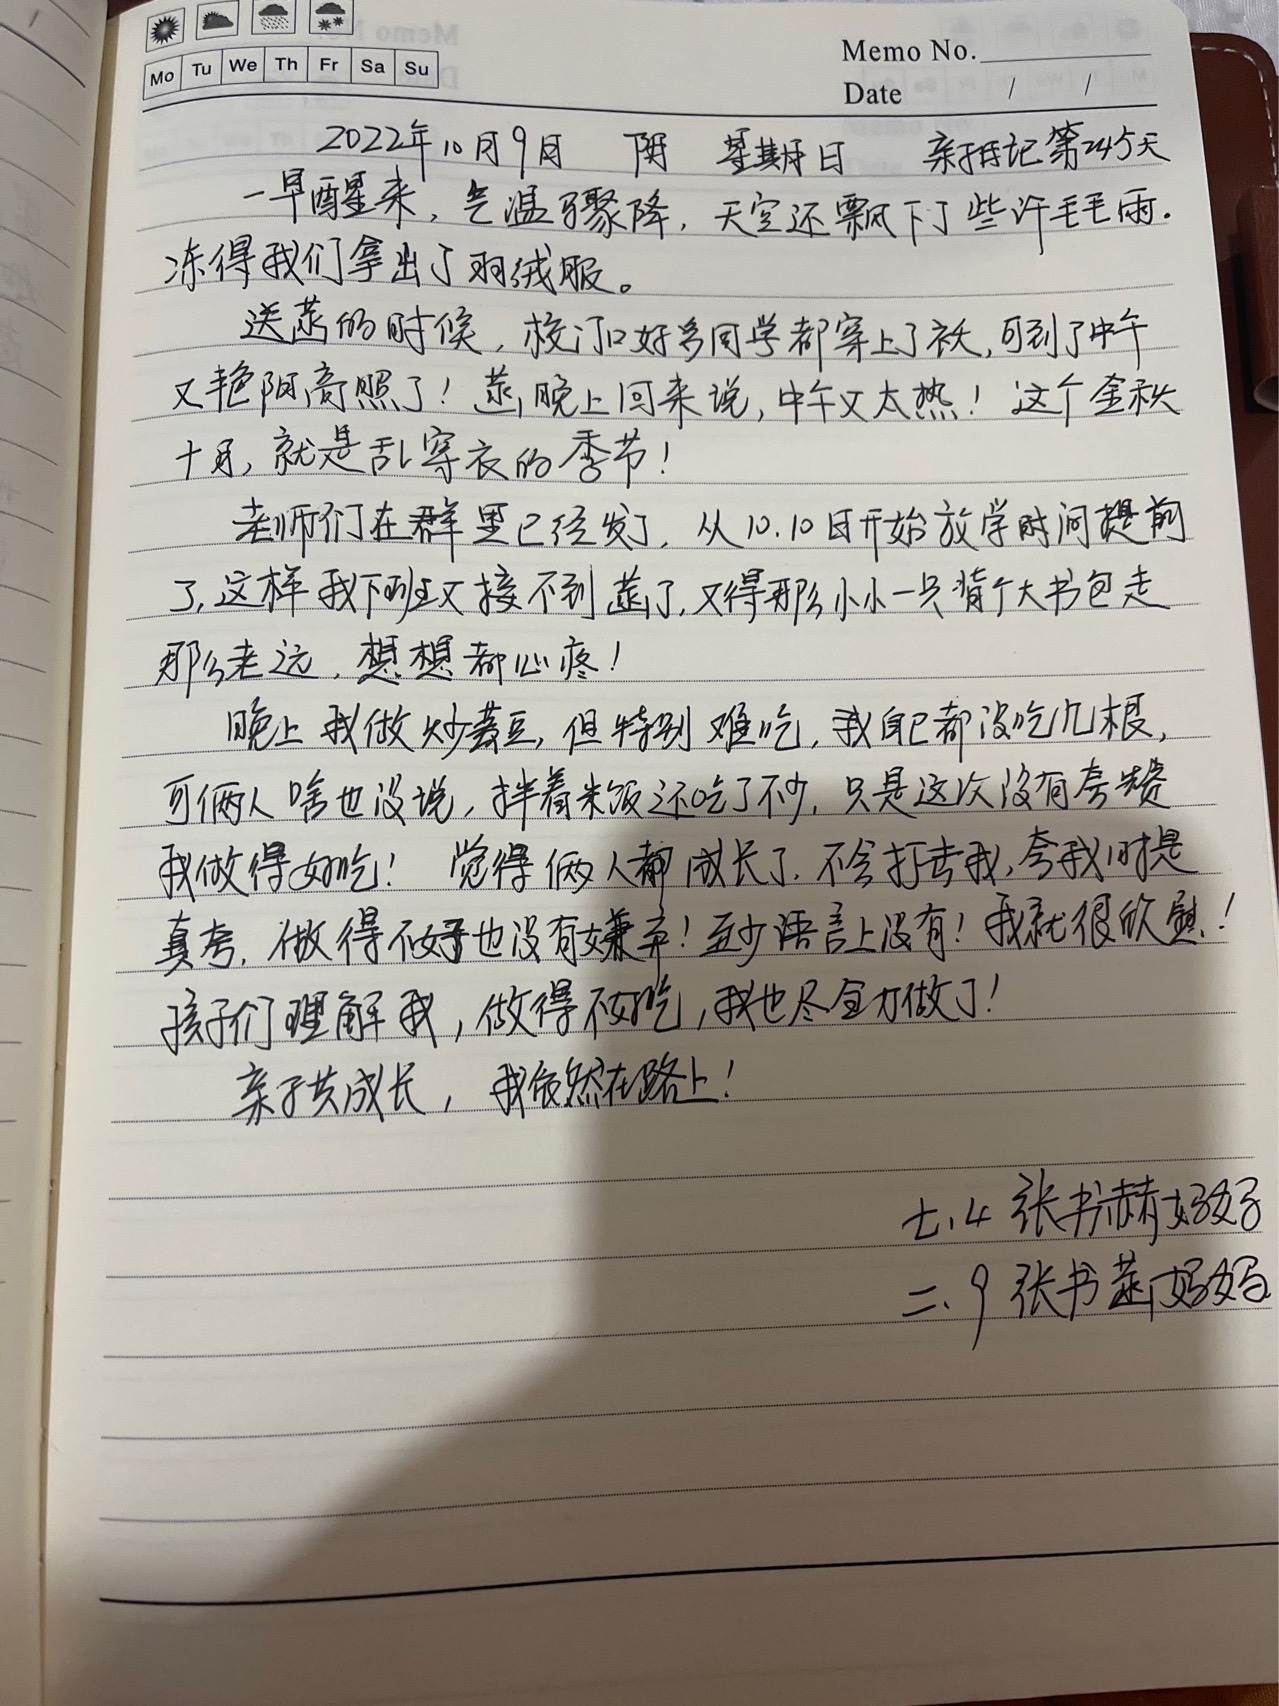 Mo Tu We Th Fr Sa Su
Memo No.
Date / /
2022年10月9日 阴 星期日 亲子日记第245天
一早醒来，气温骤降，天空还飘下了些许毛毛雨.
冻得我们拿出了羽绒服。
送菡的时候，校门口好多同学都穿上了袄，可到了中午
又艳阳高照了！菡晚上回来说，中午又太热！这个金秋
十月，就是乱穿衣的季节！
老师们在群里已经发了，从10.10日开始放学时间提前
了，这样我下班又接不到菡了，又得那么小小一只背个大书包走
那么老远，想想都心疼！
晚上我做炒芸豆，但特别难吃，我自己都没吃几根，
可俩人啥也没说，拌着米饭还吃了不少，只是这次没有夸赞
我做得好吃！ 觉得俩人都成长了.不会打击我，夸我时是
真夸，做得不好也没有嫌弃！至少语言上没有！我就很欣慰！
孩子们理解我，做得不好吃，我也尽全力做了！
亲子共成长，我依然在路上！
七.4 张书赫妈妈
二.9 张书菡妈妈